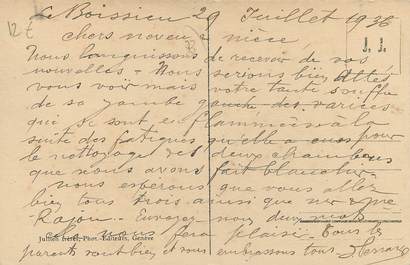 12€
Le Boissieu 29 Juillet 1936
Chers neveu & nièce
J. J.
Nous languissons de recevoir de vos
nouvelles - Nous serions bien allés
vous voir mais votre tante souffre
de sa jambe gauche des varices
qui se sont enflammées à la
suite des fatigues qu'elle a eues pour
le nettoyage des deux chambres
que nous avons fait blanchir
nous espérons que vous allez
bien tous trois ainsi que Mr & Mme
Envoyez nous deux mots
Jullien frères, Phot.-Editeurs, Genève
cela nous fera plaisir. Tous les
parents vont bien et vous embrassons tous